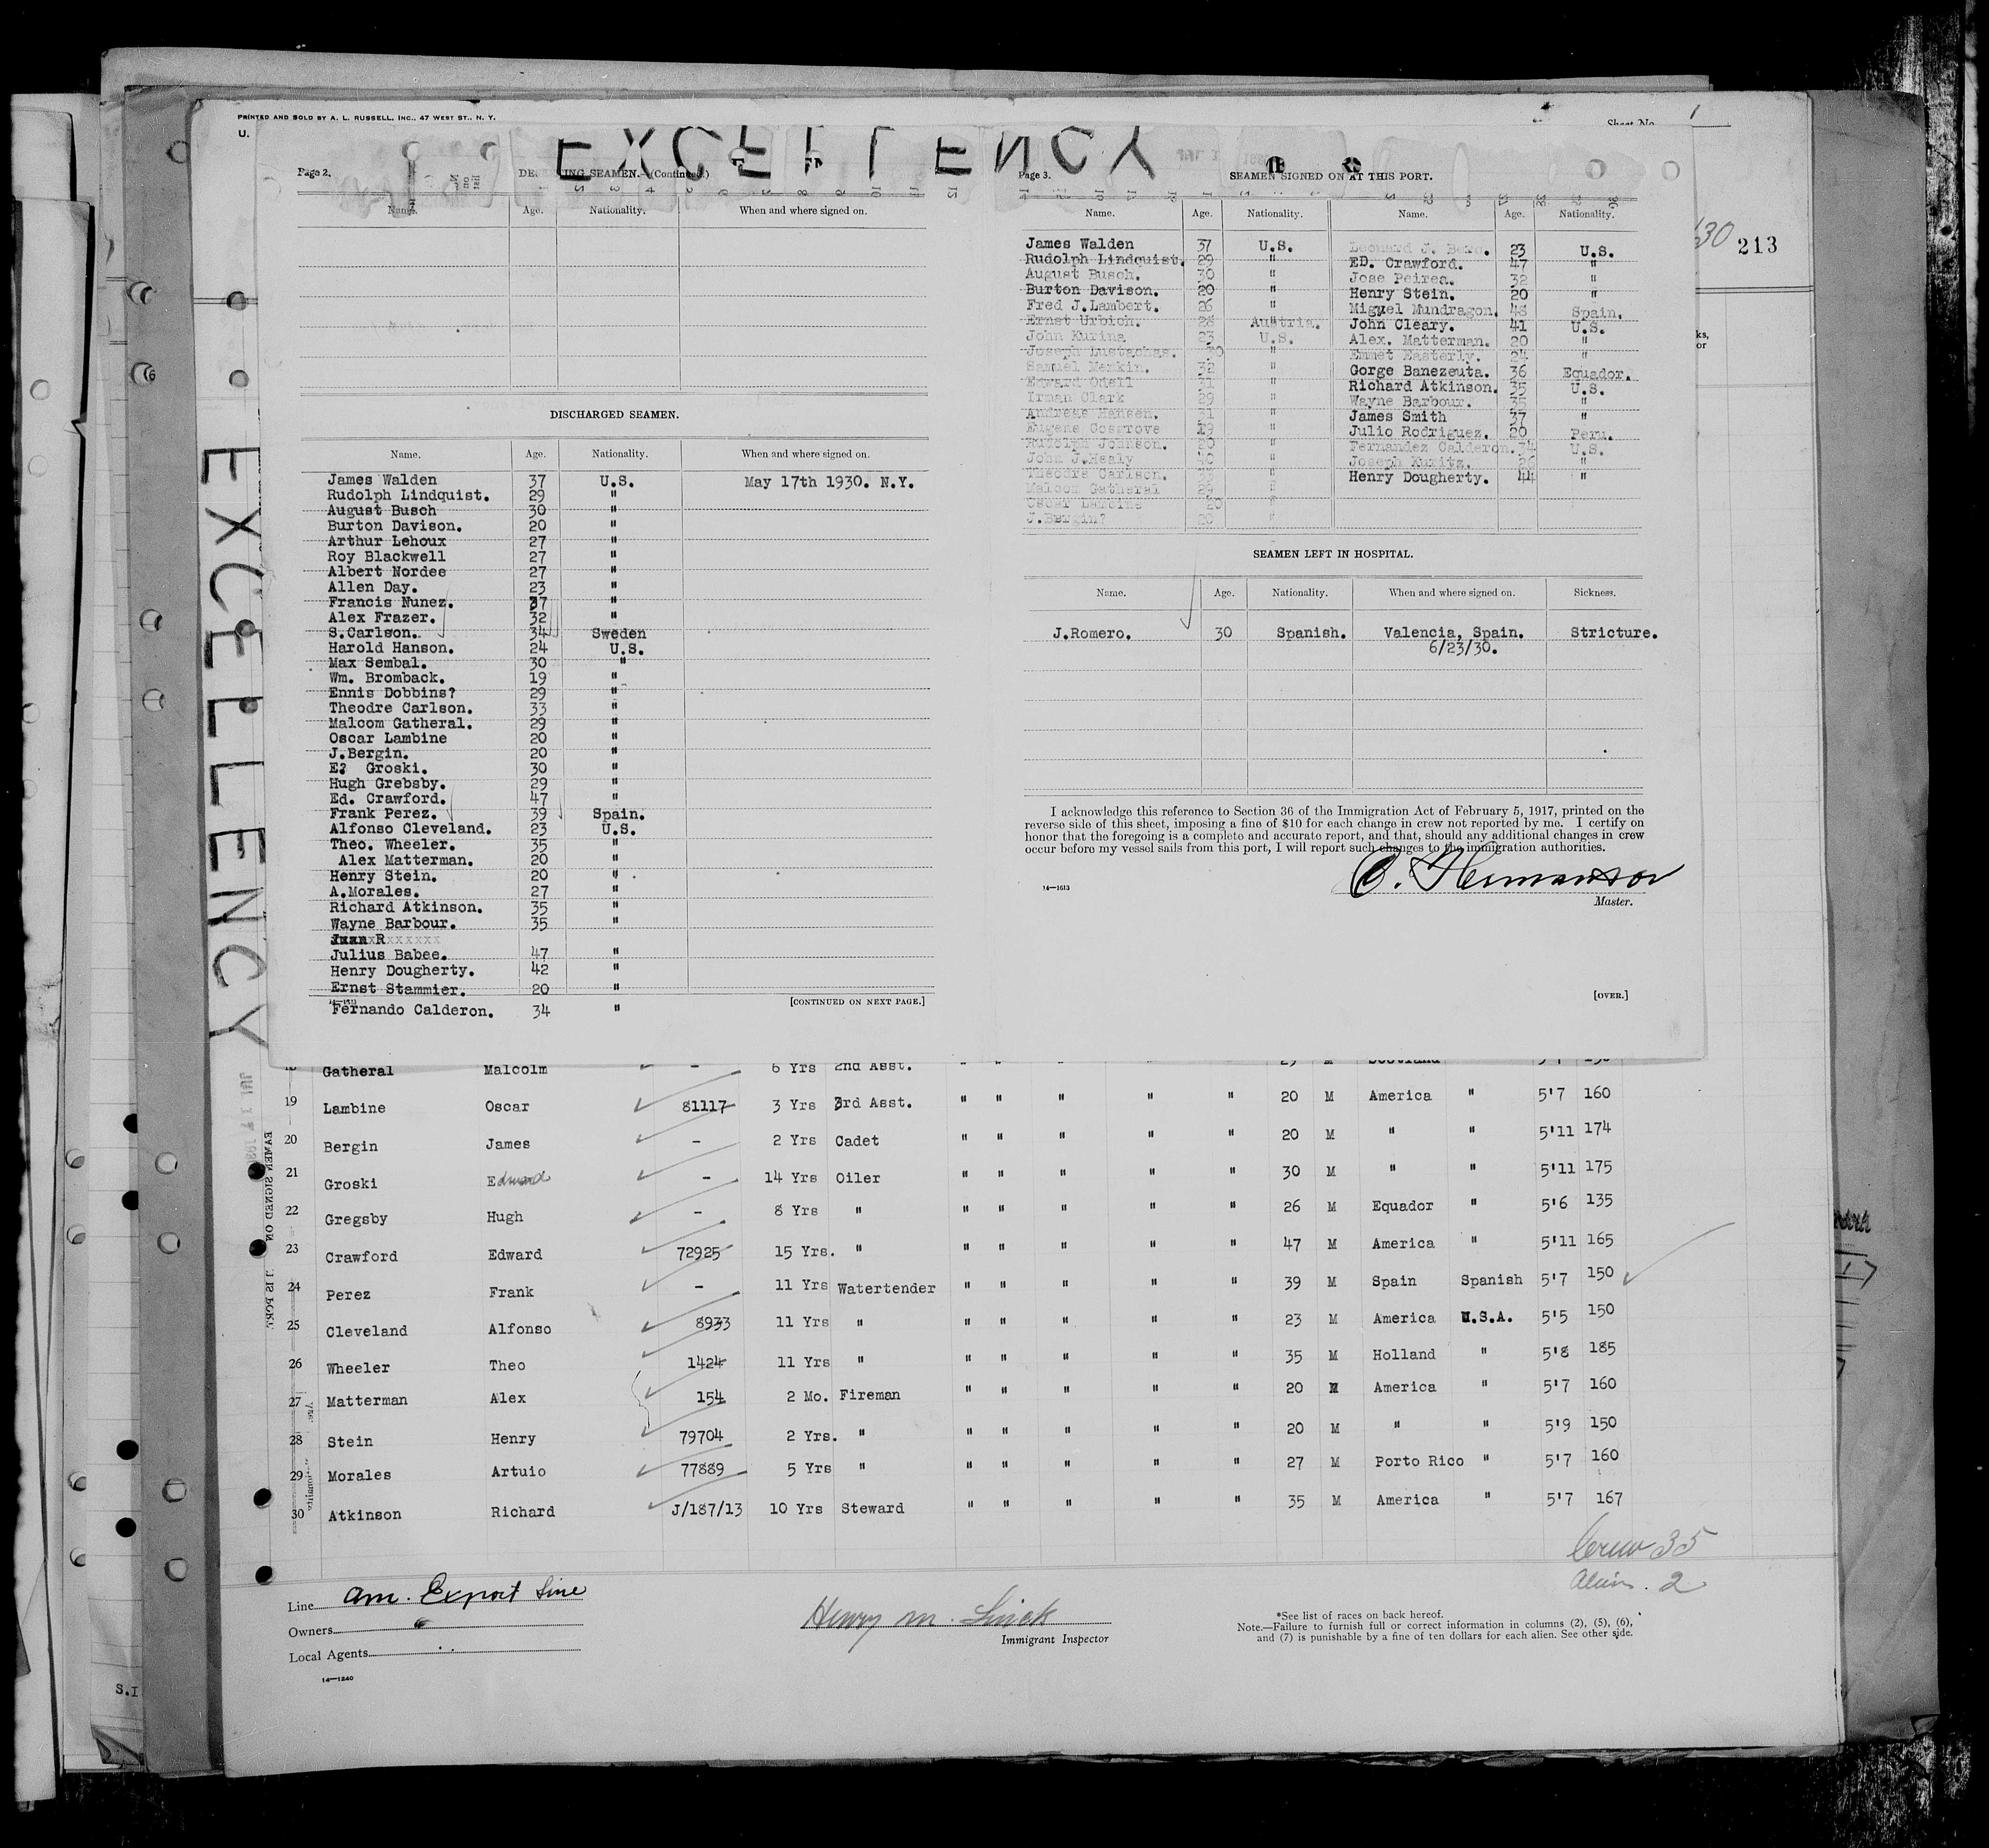 PRINTED AND SOLD BY A. L. RUSSELL, INC., 47 WEST ST., N. Y.
U.
Sheet No. 1
EXCELLENCY
Page 2.
SEAMEN.—(Continued)
Name. Age. Nationality. When and where signed on.
DISCHARGED SEAMEN.
Name. Age. Nationality. When and where signed on.
James Walden 37 U.S. May 17th 1930. N.Y.
Rudolph Lindquist. 29 "
August Busch 30 "
Burton Davison. 20 "
Arthur Lehoux 27 "
Roy Blackwell 27 "
Albert Nordee 27 "
Allen Day. 23 "
Francis Nunez. 37 "
Alex Frazer. 32 "
S.Carlson. 34 Sweden
Harold Hanson. 24 U.S.
Max Sembal. 30 "
Wm. Bromback. 19 "
Ennis Dobbins? 29 "
Theodre Carlson. 33 "
Malcom Gatheral. 29 "
Oscar Lambine 20 "
J.Bergin. 20 "
E? Groski. 30 "
Hugh Grebsby. 29 "
Ed. Crawford. 47 "
Frank Perez. 39 Spain.
Alfonso Cleveland. 23 U.S.
Theo. Wheeler. 35 "
Alex Matterman. 20 "
Henry Stein. 20 "
A.Morales. 27 "
Richard Atkinson. 35 "
Wayne Barbour. 35 "
Julius Babee. 47 "
Henry Dougherty. 42 "
Ernst Stammier. 20 "
[CONTINUED ON NEXT PAGE.]
Fernando Calderon. 34 "
Page 3.
SEAMEN SIGNED ON AT THIS PORT.
Name. Age. Nationality. Name. Age. Nationality.
James Walden 37 U.S. Leonard J. Berg. 23 U.S.
Rudolph Lindquist. 29 " ED. Crawford. 47 "
August Busch. 30 " Jose Peirea. 32 "
Burton Davison. 20 " Henry Stein. 20 "
Fred J.Lambert. 26 " Miguel Mundragon. 48 Spain.
Ernst Urbich. 28 Austria. John Cleary. 41 U.S.
John Kurina 23 U.S. Alex. Matterman. 20 "
Joseph Eustachas. 30 " Emmet Easterly. 24 "
Samuel Menkin. 32 " Gorge Banezeuta. 36 Equador.
Edward Odell 31 " Richard Atkinson. 35 U.S.
Irman Clark 29 " Wayne Barbour. 35 "
Andreas Hansen. 31 " James Smith 37 "
Eugene Cosgrove 19 " Julio Rodriguez. 20 Peru.
Rudolph Johnson. 20 " Fernandez Calderon. 34 U.S.
John J.Healy 40 " Joseph Kuritz. 26 "
Theodre Carlson. 33 " Henry Dougherty. 44 "
Malcom Gatheral 29 "
Oscar Lambine 20 "
J.Bergin? 20 "
SEAMEN LEFT IN HOSPITAL.
Name. Age. Nationality. When and where signed on. Sickness.
J.Romero. 30 Spanish. Valencia, Spain. Stricture.
6/23/30.
I acknowledge this reference to Section 36 of the Immigration Act of February 5, 1917, printed on the
reverse side of this sheet, imposing a fine of $10 for each change in crew not reported by me. I certify on
honor that the foregoing is a complete and accurate report, and that, should any additional changes in crew
occur before my vessel sails from this port, I will report such changes to the immigration authorities.
14—1613
Master.
[OVER.]
30 213
ks,
or
EXCELLENCY
Gatheral Malcolm - 6 Yrs 2nd Asst. " " " " " 29 M Scotland
19 Lambine Oscar 81117 3 Yrs 3rd Asst. " " " " " 20 M America " 5'7 160
20 Bergin James - 2 Yrs Cadet " " " " " 20 M " " 5'11 174
21 Groski Edward - 14 Yrs Oiler " " " " " 30 M " " 5'11 175
22 Gregsby Hugh - 8 Yrs " " " " " " 26 M Equador " 5'6 135
23 Crawford Edward 72925 15 Yrs. " " " " " " 47 M America " 5'11 165
24 Perez Frank - 11 Yrs Watertender " " " " " 39 M Spain Spanish 5'7 150
25 Cleveland Alfonso 8933 11 Yrs " " " " " " 23 M America U.S.A. 5'5 150
26 Wheeler Theo 1424 11 Yrs " " " " " " 35 M Holland " 5'8 185
27 Matterman Alex 154 2 Mo. Fireman " " " " " 20 M America " 5'7 160
28 Stein Henry 79704 2 Yrs. " " " " " " 20 M " " 5'9 150
29 Morales Artuio 77889 5 Yrs " " " " " " 27 M Porto Rico " 5'7 160
30 Atkinson Richard J/187/13 10 Yrs Steward " " " " " 35 M America " 5'7 167
Crew 35
Aliens. 2
Line Am. Export Line
Owners
Local Agents
14—1240
Henry M.
Immigrant Inspector
*See list of races on back hereof.
Note.—Failure to furnish full or correct information in columns (2), (5), (6),
and (7) is punishable by a fine of ten dollars for each alien. See other side.
S.I